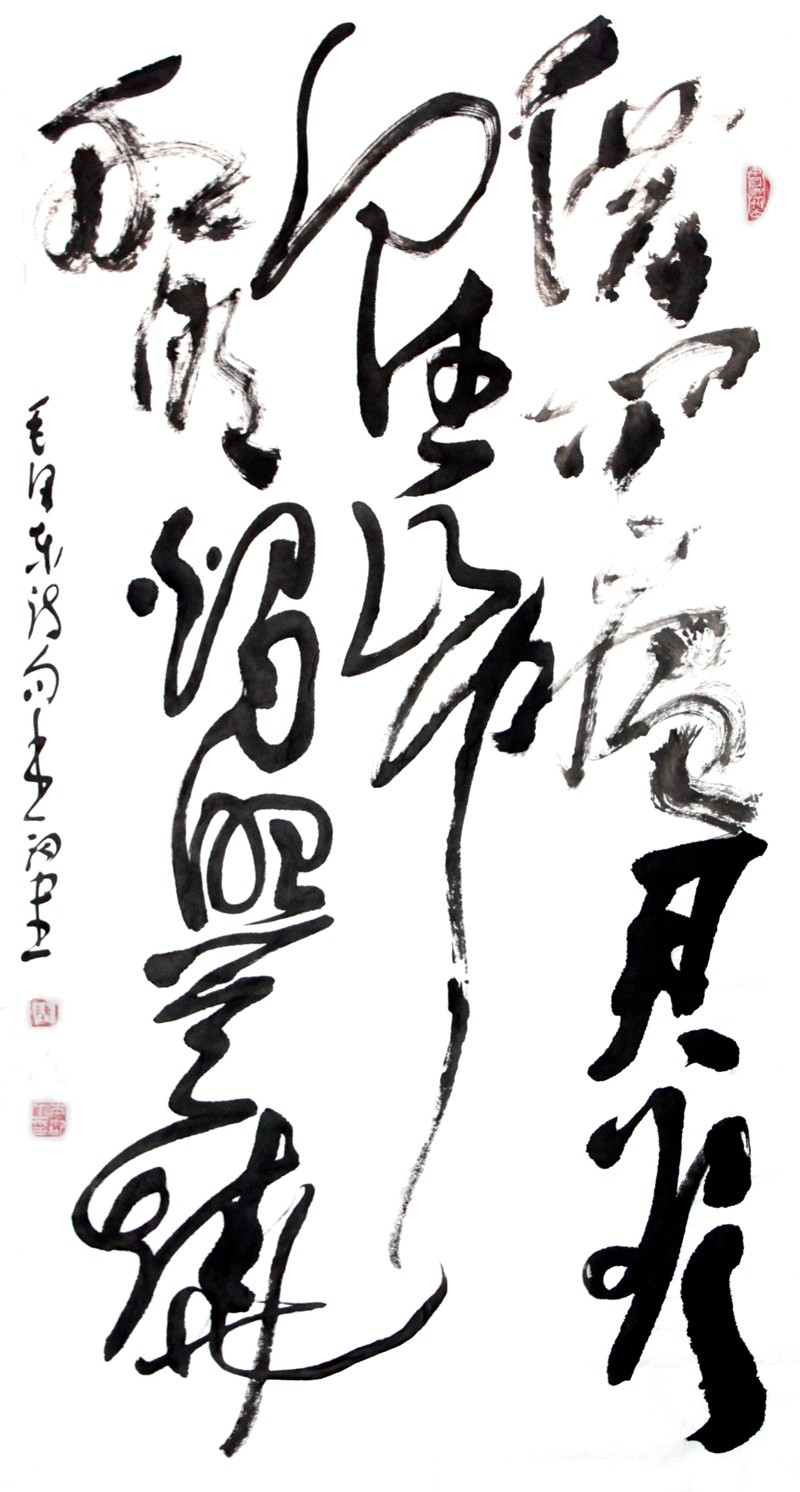 借问瘟君欲
何往纸
船明烛照天烧
毛泽东诗句